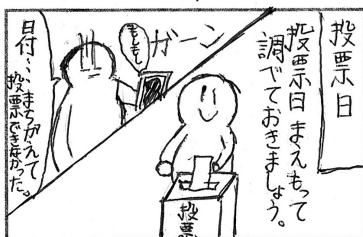 投票日
投票日まえもって
調べておきましょう。
投票
ガーン
もしもし
日付...まちがえて
投票できなかった。